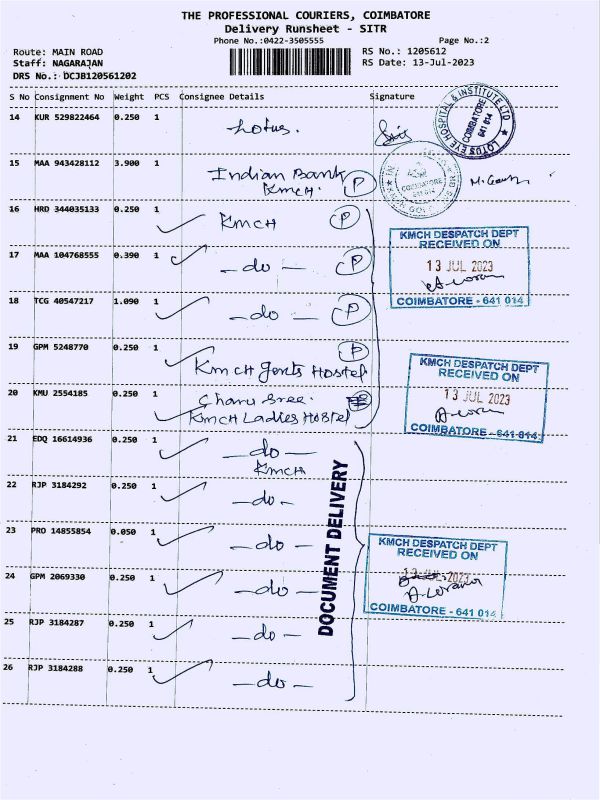 THE PROFESSIONAL COURIERS, COIMBATORE
Delivery Runsheet - SITR
Phone No.:0422-3505555 Page No.:2
Route: MAIN ROAD RS No.: 1205612
Staff: NAGARAJAN RS Date: 13-Jul-2023
DRS No.: DCJB120561202
S No Consignment No Weight PCS Consignee Details Signature
14 KUR 529822464 0.250 1 Lotus.
LOTUS EYE HOSPITAL & INSTITUTE LTD
COIMBATORE
641 014
15 MAA 943428112 3.900 1 Indian Bank
KMCH. P
COIMBATORE
16 HRD 344035133 0.250 1 KMCH P
17 MAA 104768555 0.390 1 -do- P
KMCH DESPATCH DEPT
RECEIVED ON
13 JUL 2023
COIMBATORE - 641 014
18 TCG 40547217 1.090 1 -do- P
19 GPM 5248770 0.250 1 P
KMCH Gents Hostel
20 KMU 2554185 0.250 1 Charu Sree.
KMCH Ladies Hostel
KMCH DESPATCH DEPT
RECEIVED ON
13 JUL 2023
COIMBATORE - 641 014
21 EDQ 16614936 0.250 1 -do-
KMCH
22 RJP 3184292 0.250 1 -do-
23 PRO 14855854 0.050 1 -do-
24 GPM 2069330 0.250 1 -do-
DOCUMENT DELIVERY
KMCH DESPATCH DEPT
RECEIVED ON
13 JUL 2023
COIMBATORE - 641 014
25 RJP 3184287 0.250 1 -do-
26 RJP 3184288 0.250 1 -do-